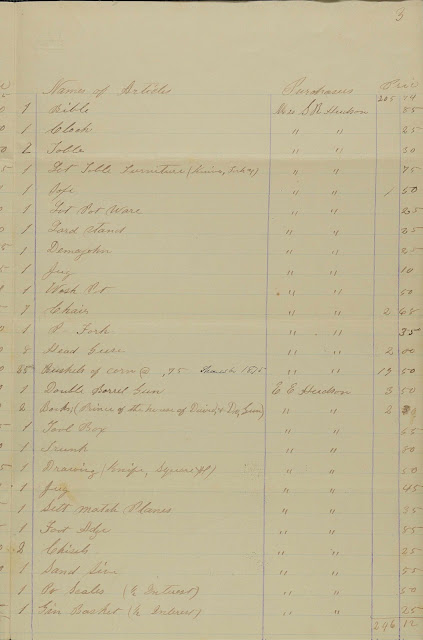 3
Names of Articles Purchasers Price
205 14
1 Bible Mrs. S R Hudson 85
1 Clock " " 25
2 Table " " 30
1 Lot Table Furniture ( " " 75
1 Safe " " 1 50
1 Lot Pot Ware " " 25
1 Lard Stand " " 25
1 Demajohn " " 25
1 Jug " " 10
1 Wash Pot " " 50
7 Chair " " 2 68
1 P. Fork " " 35
8 Head Geese " " 2 00
Bushels of corn @ .75 " " 19 50
1 Double Barrel Gun E. E. Hudson 3 50
2 Books (Prince of the house of David & " " 2
1 Tool Box " " 65
1 Trunk " " 80
1 Drawing Knife, Square " " 50
1 Jug " " 45
1 Sett match Planes " " 35
1 Foot Adge " " 85
2 Chisels " " 25
1 Sand " " 55
1 Po Scales (½ Interest) " " 50
1 Gin Basket (½ Interest) " " 25
246 12